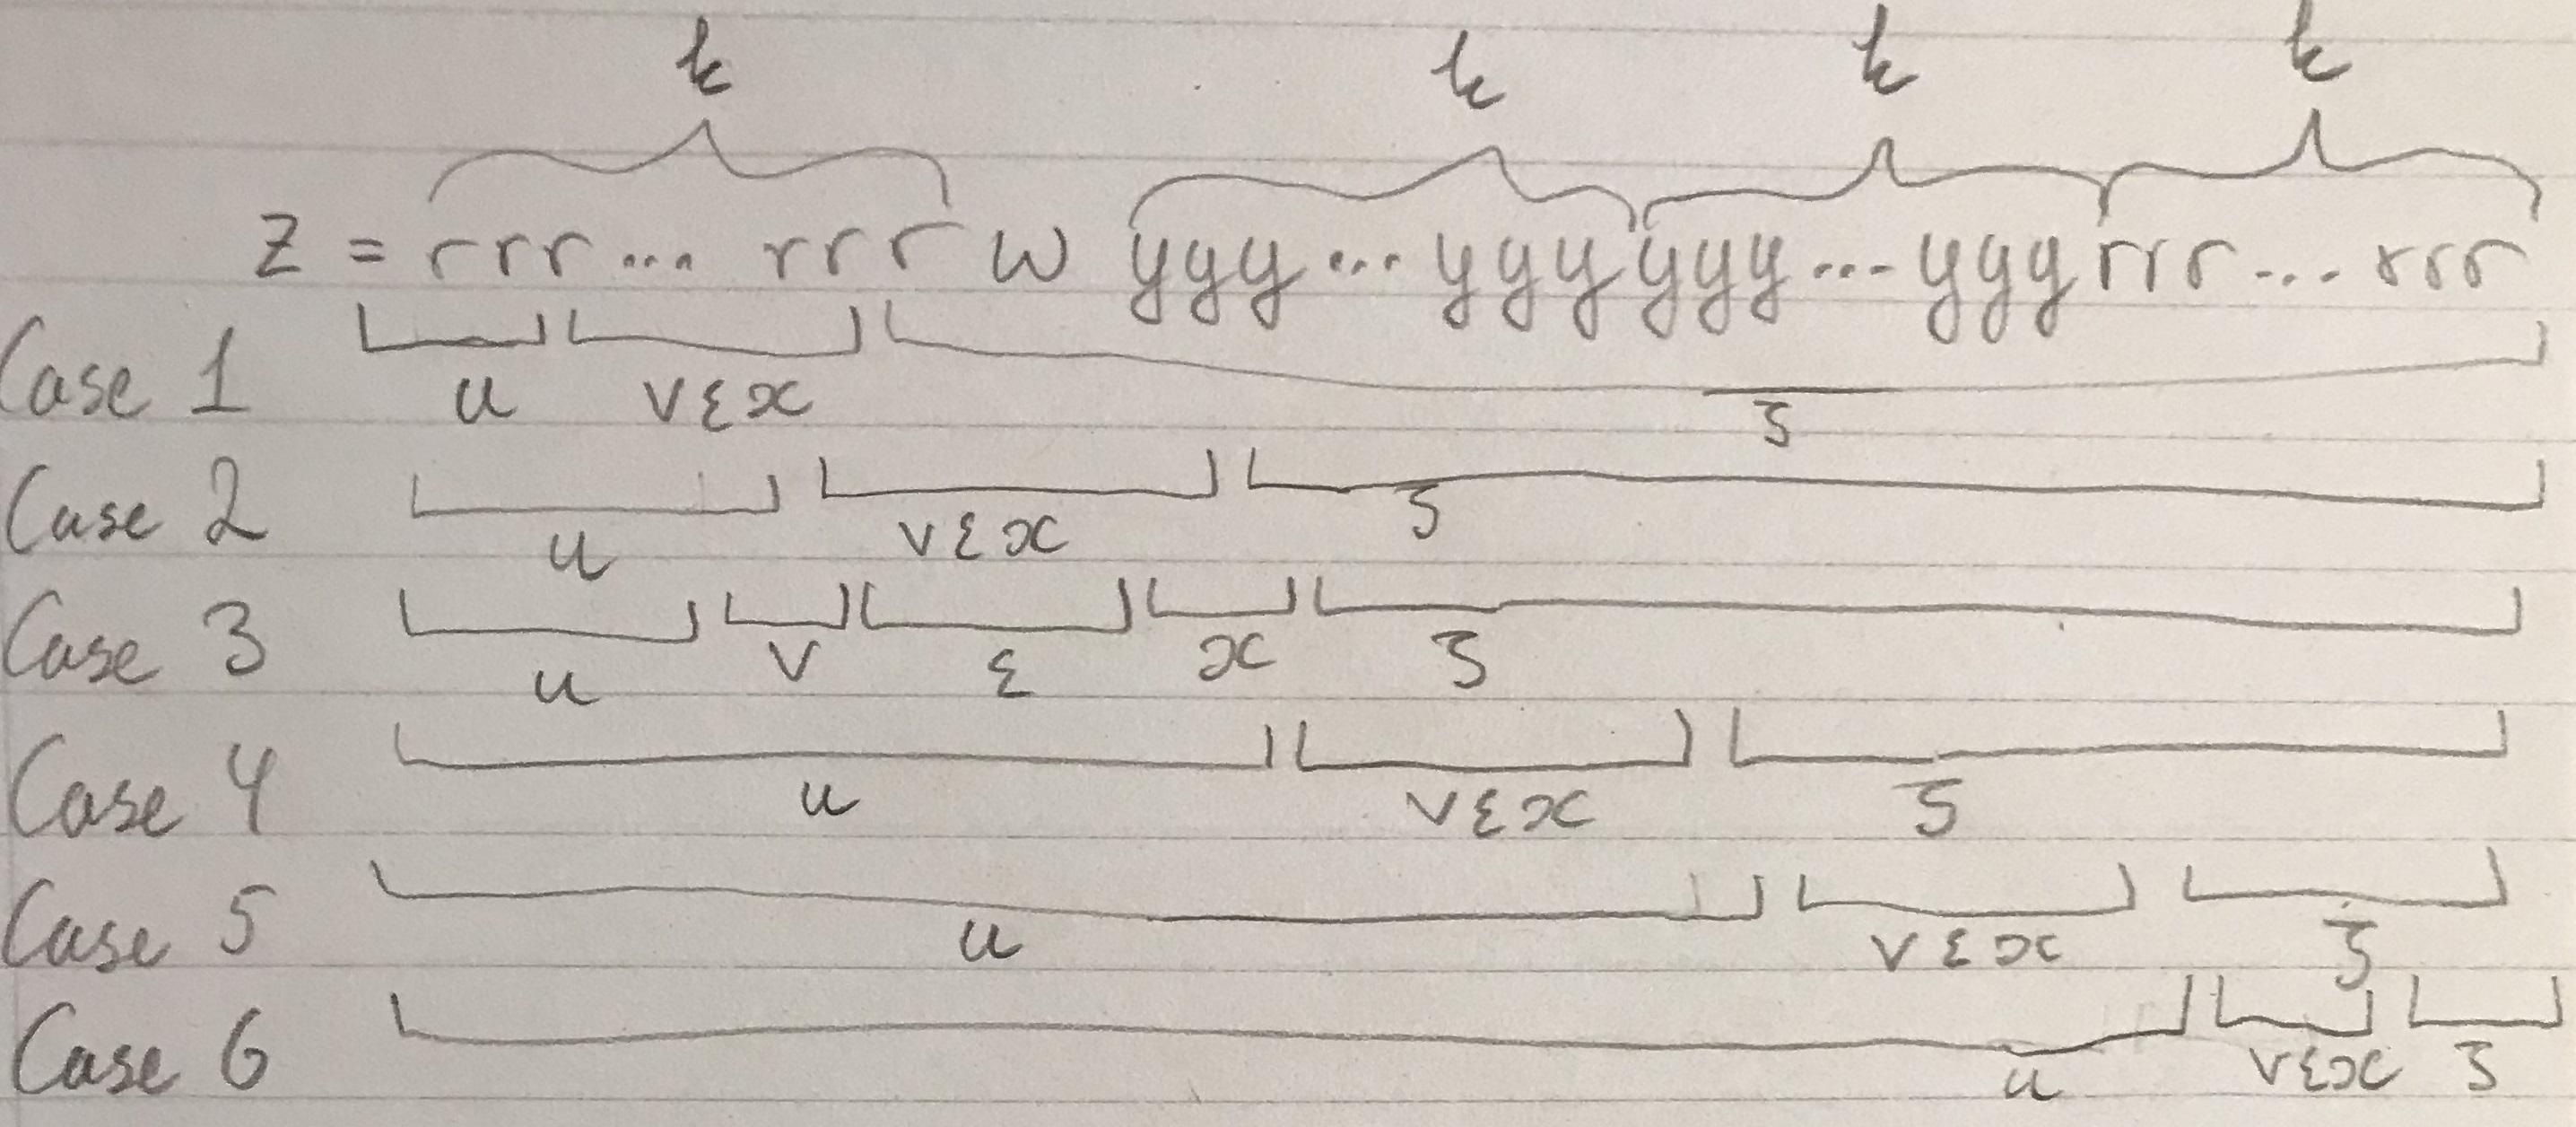 k k k k
z = rrr... rrr w yyy...yyyyyy...yyyrrr...rrr
Case 1 u vξx ζ
Case 2 u vξx ζ
Case 3 u v ξ x ζ
Case 4 u vξx ζ
Case 5 u vξx ζ
Case 6 u vξx ζ